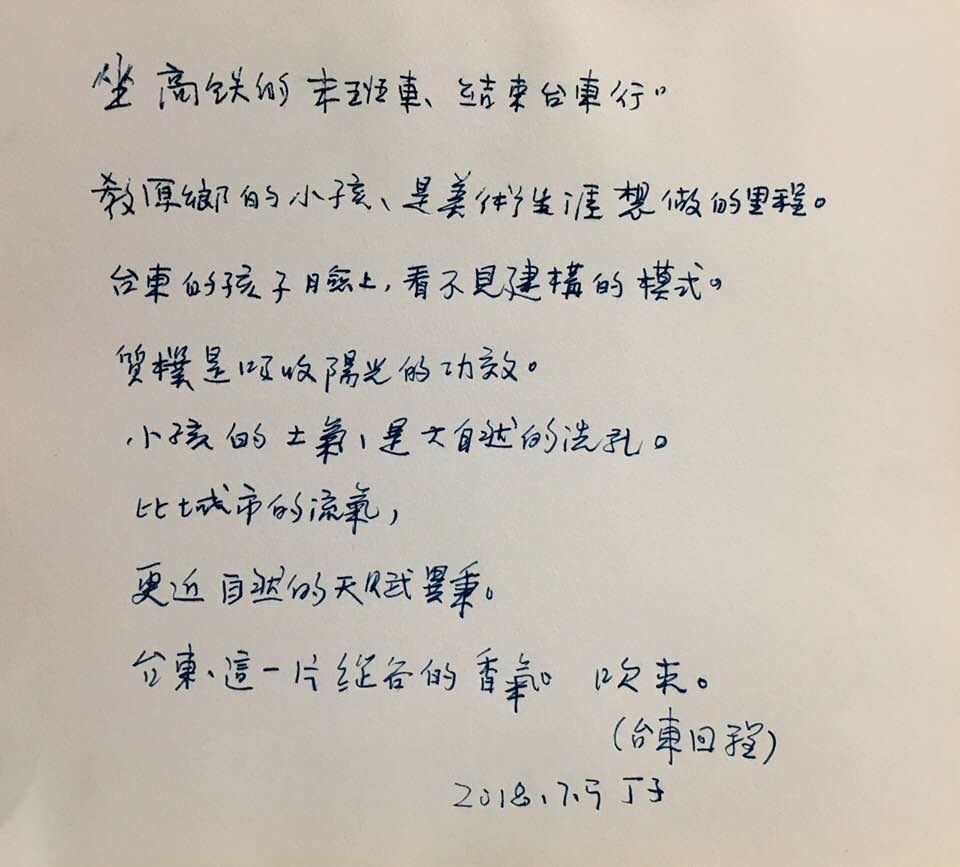 坐高鉄的末班車、結束台東行。
教原鄉的小孩、是美術生涯想做的里程。
台東的孩子臉上,看不見建構的模式。
質樸是吸收陽光的功效。
小孩的土氣、是大自然的洗礼。
比土城市的流氣,
更近自然的天賦異秉。
台東、這一片縱谷的香氣。吹來。
(台東回程)
2018.7.5 丁子